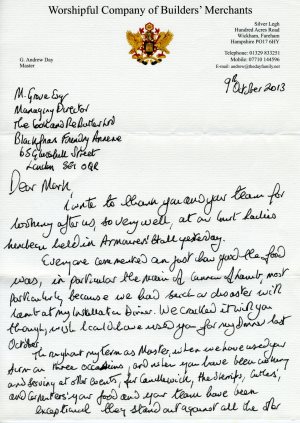 Worshipful Company of Builders' Merchants
Silver Legh
Hundred Acres Road
Wickham, Fareham
Hampshire PO17 6HY
G. Andrew Day
Master
Telephone: 01329 833251
Mobile: 07710 144596
E-mail: andrew@thedayfamily.net
9th October 2013
M. Grove Esq
Managing Director
The Cook and The Butler Ltd
Blackfriars Foundry Annexe
65 Glasshill Street
London SE1 0QR
Dear Mark,
I write to thank you and your team for
looking after us, so very well, at our Court Ladies
luncheon held in Armourers' Hall yesterday.
Everyone commented on just how good the food
was, in particular the main of Cannon of Lamb, most
particularly because we had such a disaster with
Lamb at my Installation Dinner. We cracked it with you
though, wish I could have used you for my dinner last
October.
Throughout my term as Master, when we have used your
firm on three occasions, and when you have been cooking
and serving at other events, for Candlewick, the
and Carpenters' your food and your team have been
exceptional they stand out against all the other